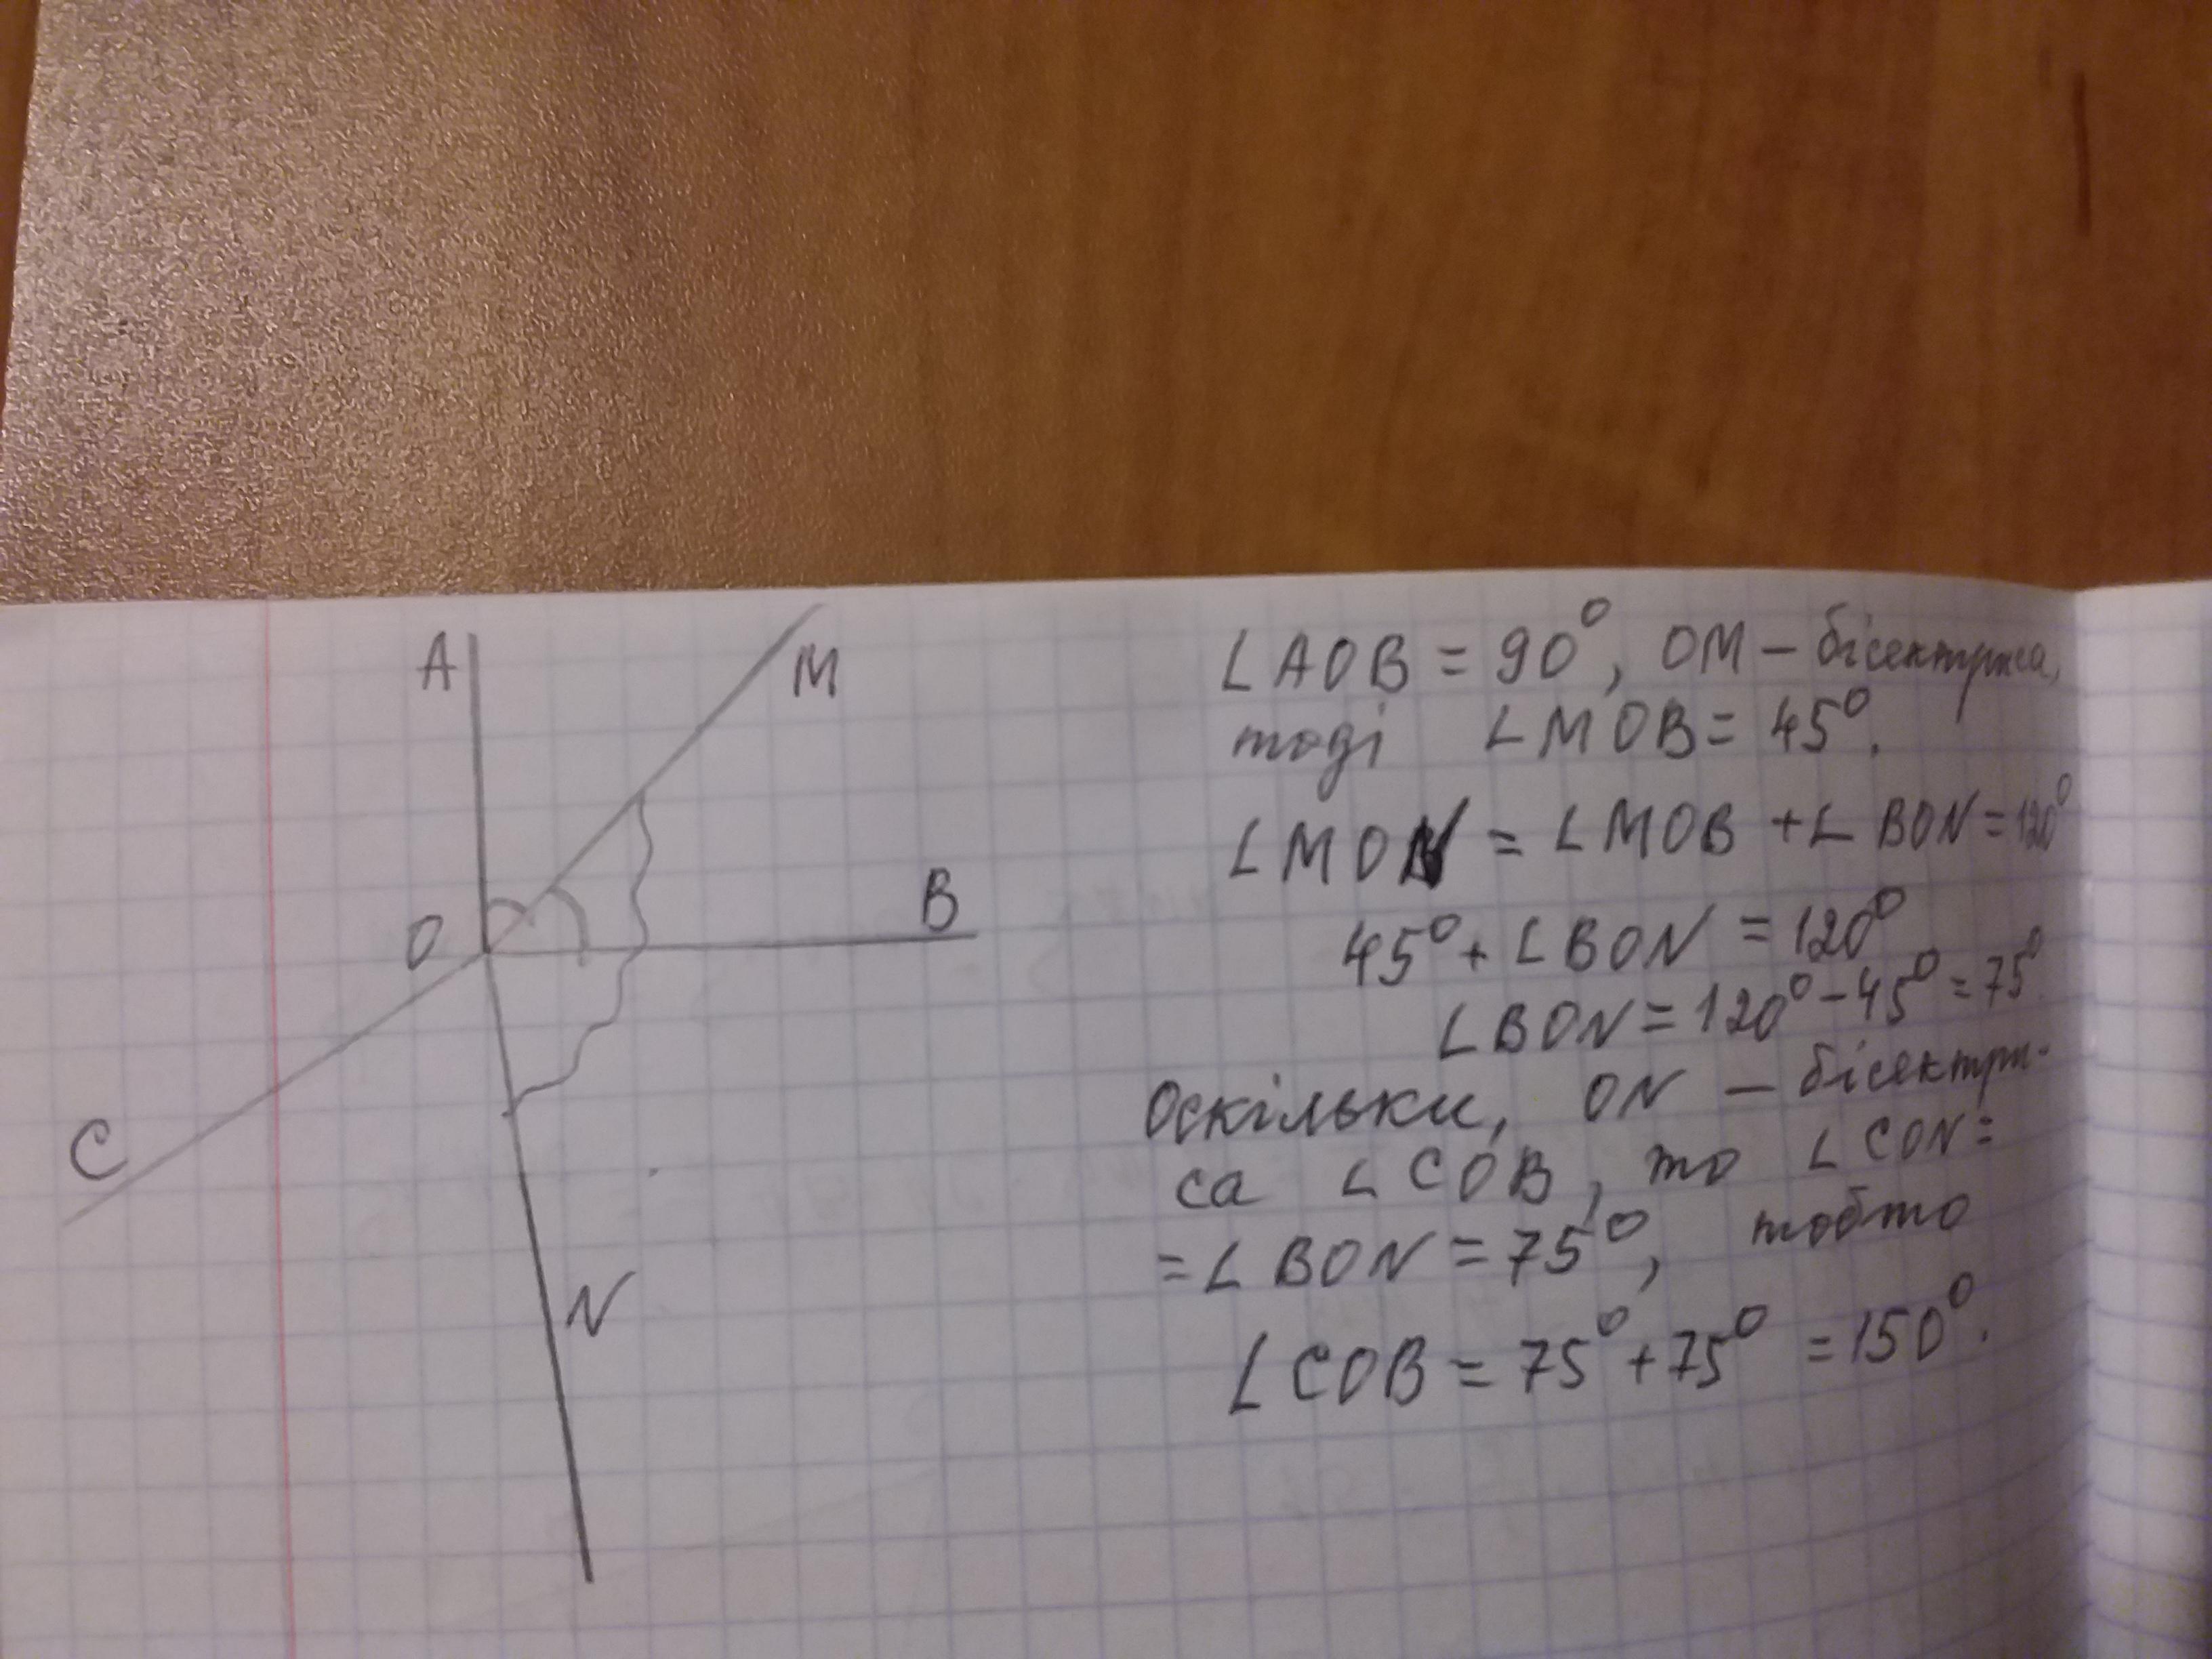 A
M
O
B
C
N
∠AOB = 90°, OM – бісектриса,
тоді ∠MOB = 45°.
∠MON = ∠MOB + ∠BON = 120°
45° + ∠BON = 120°
∠BON = 120° – 45° = 75°
Оскільки, ON – бісектри-
са ∠COB, то ∠CON =
= ∠BON = 75°, тобто
∠COB = 75° + 75° = 150°.